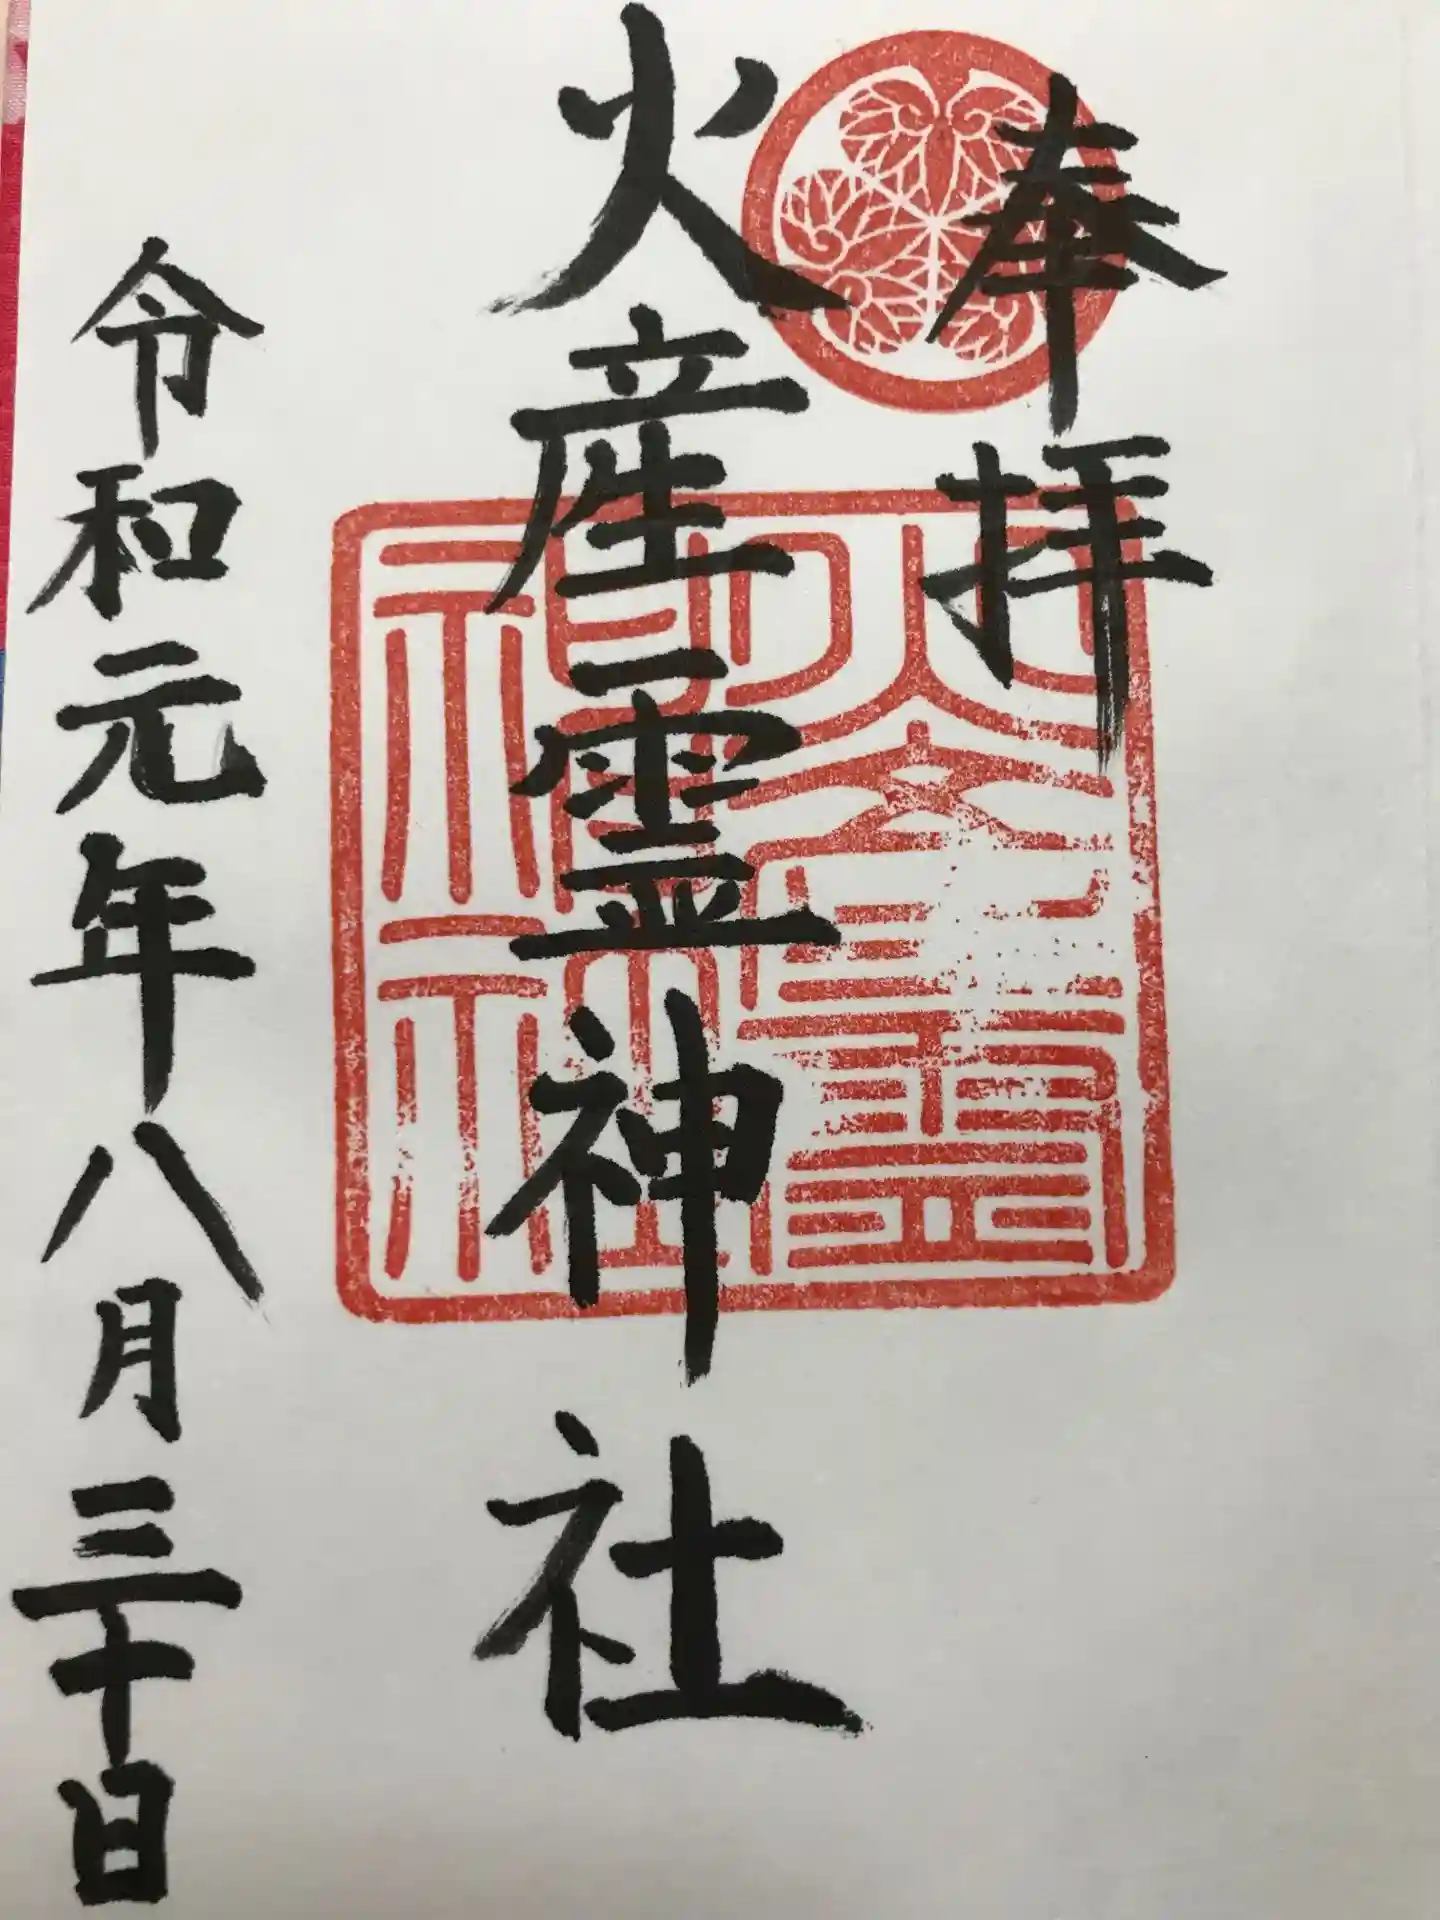 奉拝
火産霊神社
火産霊神社
令和元年八月三十日